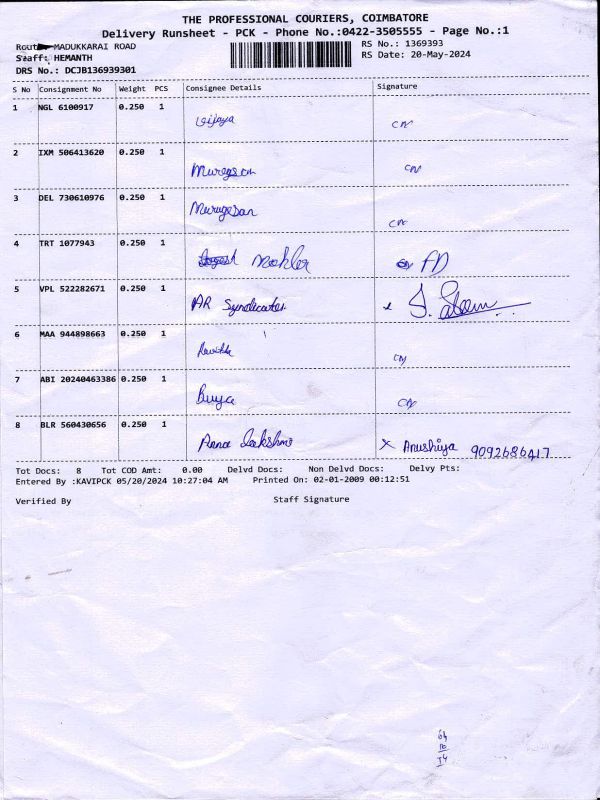 THE PROFESSIONAL COURIERS, COIMBATORE
Delivery Runsheet - PCK - Phone No.:0422-3505555 - Page No.:1
Route MADUKKARAI ROAD RS No.: 1369393
Staff: HEMANTH RS Date: 20-May-2024
DRS No.: DCJB136939301
S No Consignment No Weight PCS Consignee Details Signature
1 NGL 6100917 0.250 1 Vijaya CN
2 IXM 506413620 0.250 1 Murugesan CN
3 DEL 730610976 0.250 1 Murugesan CN
4 TRT 1077943 0.250 1 FD
5 VPL 522282671 0.250 1 AR Syndicates
6 MAA 944898663 0.250 1 CN
7 ABI 20240463386 0.250 1 CN
8 BLR 560430656 0.250 1 Anna Lakshmi X Anushiya 9092686417
Tot Docs: 8 Tot COD Amt: 0.00 Delvd Docs: Non Delvd Docs: Delvy Pts:
Entered By :KAVIPCK 05/20/2024 10:27:04 AM Printed On: 02-01-2009 00:12:51
Verified By Staff Signature